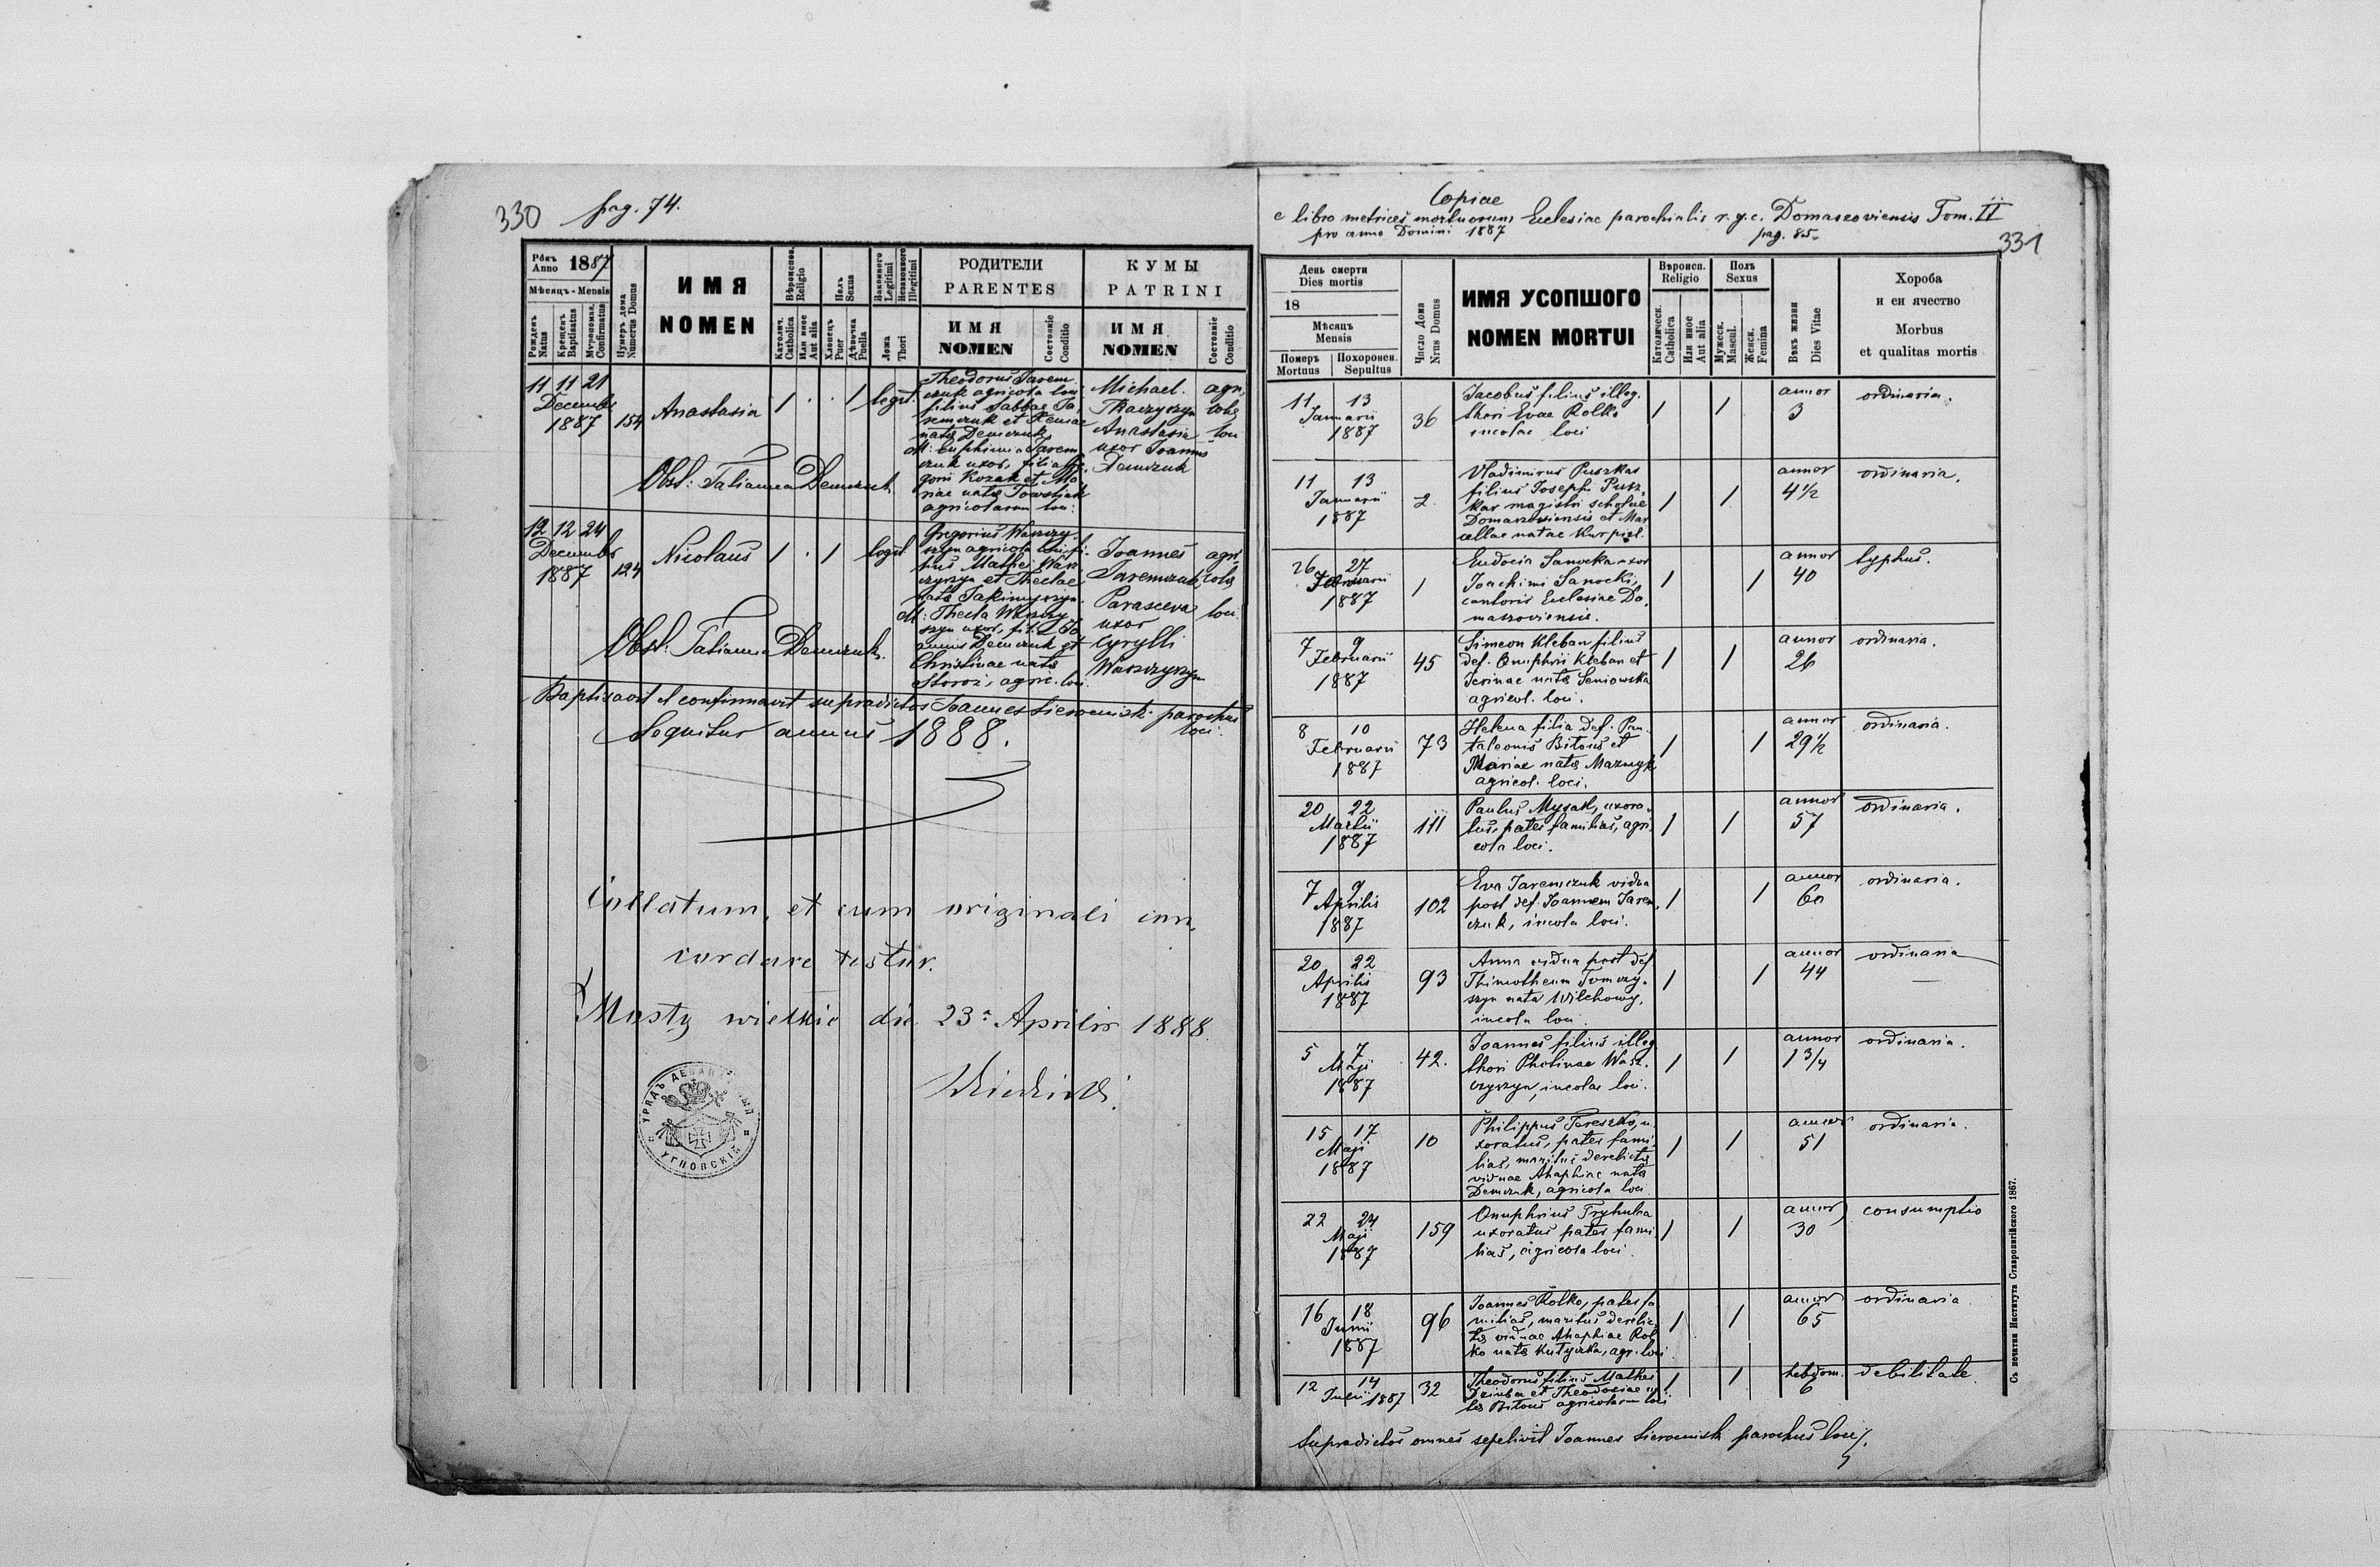 330 pag. 74.
Рôкъ
Anno 1887
Мѣсяцъ - Mensis
Рожденъ
Natus
Крещенъ
Baptisatus
Мѵропомаз.
Confirmatus
Нумеръ дома
Numerus Domus
ИМЯ
NOMEN
Вѣроиспов.
Religio
Католич.
Catholica
Или иное
Aut alia
Полъ
Sexus
Хлопецъ
Puer
Дѣвочка
Puella
Законного
Legitimi
Незаконного
Illegitimi
Ложа
Thori
РОДИТЕЛИ
PARENTES
ИМЯ
NOMEN
Состоянiе
Conditio
КУМЫ
PATRINI
ИМЯ
NOMEN
Состоянiе
Conditio
11 11 21
Decembr
1887
154
Anastasia
1 · · 1 legit.
Theodorus Jarem
czuk agricola loci
filius Sabbae Ja
remczuk et Xeniae
nata Demczuk
M: Euphimia Jarem
czuk uxor, filia Gre
gorii Kozak et Ma
riae nata
agricolarum loci:
Michael
Tkaczyszyn
Anastasia
uxor Joannis
Demczuk
agri
colae
loci
Obst: Tatianna Demczuk
12 12 24
Decembr
1887
124
Nicolaus
1 · 1 legit
Gregorius Waszczy
szyn agricola loci fi
lius Mathei Wasz
czyszyn et Theclae
nata Jakimyszyn
M: Thecla Waszczy
szyn uxor, fil: Jo
annis Demczuk et
Christinae nata
Storoz, agric. loci
Joannes
Jaremczuk
Parasceva
uxor
Cyrylli
Waszczyszyn
agri
colae
loci
Obst: Tatianna Demczuk.
Baptisavit et confirmavit supradictos Joannes Sieromiski parochus
loci.
Sequitur annus 1888.
Collatum, et cum originali con,
cordare testor.
Mosty wielkie die 23a Aprilis 1888.
УРЯДЪ ДЕКАН
УГНОВСКIЙ
Copiae
e libro metrices mortuorum Eclesiae parochialis r. g. c. Domaszoviensis Tom. II
pro anno Domini 1887 pag. 85.
331
День смерти
Dies mortis
18
Мѣсяцъ
Mensis
Померъ
Mortuus
Похоронен.
Sepultus
Число Дома
Nrus Domus
ИМЯ УСОПШОГО
NOMEN MORTUI
Вѣроисп.
Religio
Католическ.
Catholica
Или иное
Aut alia
Полъ
Sexus
Мужеск.
Mascul.
Женск.
Femina
Вѣкъ жизни
Dies Vitae
Хороба
и еи ячество
Morbus
et qualitas mortis
11 13
Januarii
1887
36
Jacobus filius illeg.
thori Evae Rolko
incolae loci
1 1
annor
3
ordinaria.
11 13
Januarii
1887
2
Vladimirus Puszkar
filius Josephi Pusz,
kar magistri scholae
Domaszoviensis et Mar
cellae natae Kurpiel.
1 1
annor
4½
ordinaria.
26 27
Februarii
1887
1
Eudocia Sanocka uxor
Joachimi Sanocki,
cantoris Eclesiae Do,
maszoviensis.
1 1
annor
40
typhus.
7 9
Februarii
1887
45
Simeon Kleban filius
def. Onuphrii Kleban et
Irinae nata Seniowska
agricol. loci.
1 1
annor
26
ordinaria.
8 10
Februarii
1887
73
Helena filia def. Pan
taleonis Bitous et
Mariae nata Mazuryk
agricol. loci.
1 1
annor
29½
ordinaria.
20 22
Martii
1887
111
Paulus Mysak, uxora
tus, pater familias, agri
cola loci.
1 1
annor
57
ordinaria.
7 9
Aprilis
1887
102
Eva Jaremczuk vidua
post def. Joannem Jarem,
czuk, incola loci.
1 1
annor
60
ordinaria.
20 22
Aprilis
1887
93
Anna vidua post def
Thimotheum Tomczy,
szyn nata Wilchowy,
incola loci.
1 1
annor
44
ordinaria
5 7
Maji
1887
42.
Joannes filius illeg
thori Photinae Wasz,
czyszyn, incolae loci.
1 1
annor
1 3/4
ordinaria.
15 17
Maji
1887
10
Philippus Tereszko, u
xoratus, pater fami
lias, maritus derelicta
viduae Ahaphiae nata
Demczuk, agricola loci.
1 1
annor
51
ordinaria.
22 24
Maji
1887
159
Onuphrius Tryhuba
uxoratus pater fami
lias, agricola loci.
1 1
annor
30
consumptio
16 18
Junii
1887
96
Joannes Rolko, pater fa
milias, maritus derelic,
ta viduae Ahaphiae Rol
ko nata Kutyczka, agr. loci
1 1
annor
65
ordinaria
12 14
Julii 1887
32
Theodorus filius Mathei
Dziuba et Theodosiae na
ta Bitous agricolarum loci
1 1
hebdom.
6
debilitate.
Supradictos omnes sepelivit Joannes Sieromiski parochus loci.
Съ печатни Института Ставропигiйского 1867.